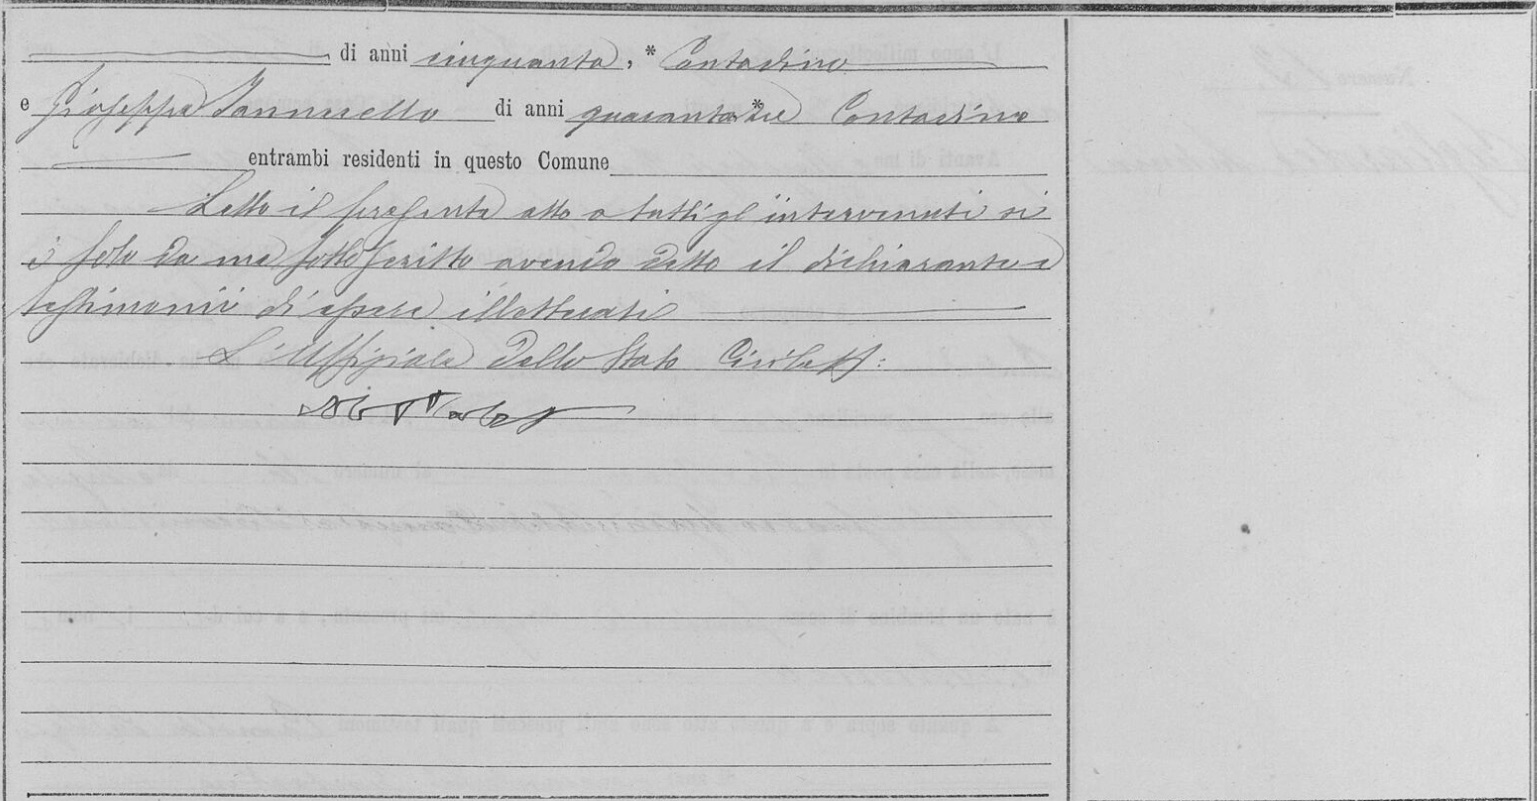 di anni cinquanta, * Contadino
e Giuseppe Iannuello di anni quaranta*tre Contadino
entrambi residenti in questo Comune
Letto il presente atto a tutti gl'intervenuti si
è solo da me sottoscritto avendo detto il dichiarante e
testimonii di essere illetterati
L'Uffiziale dello Stato Civile